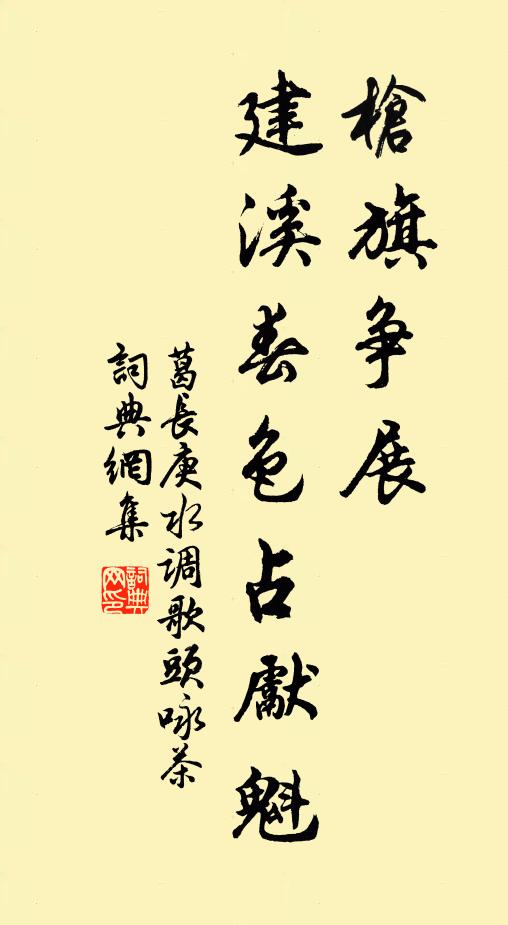 槍旗争展
建溪春色占獻魁
葛長庚水调歌頭咏茶
詞典網集
詞典網印